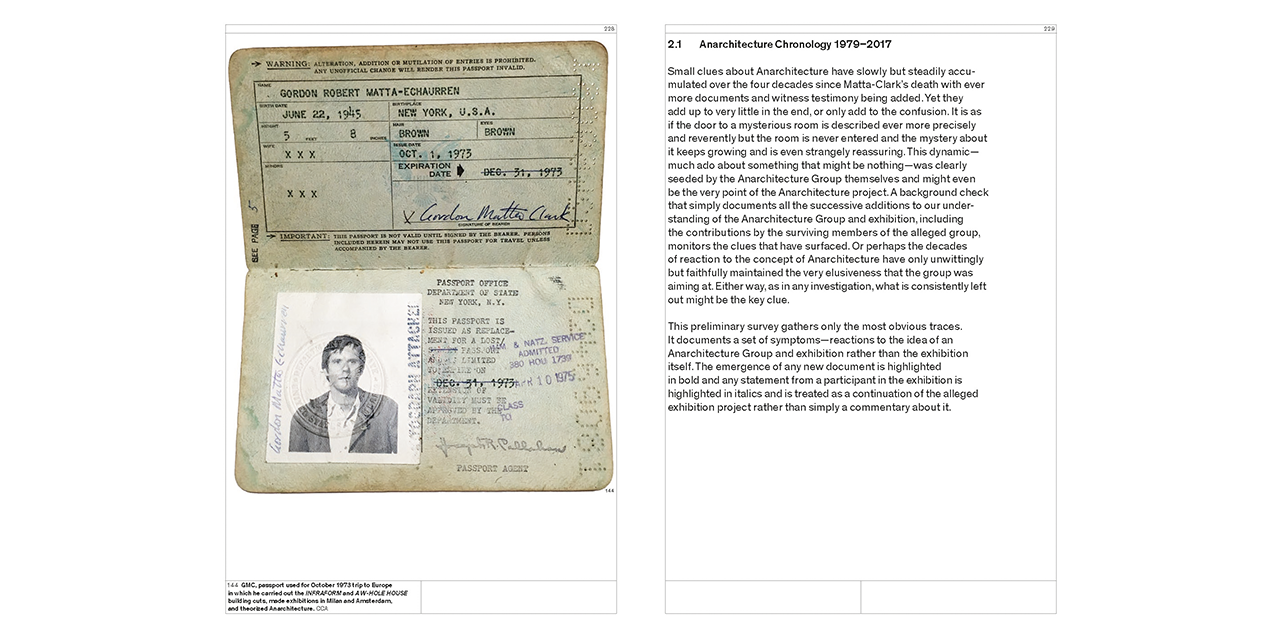 228
WARNING: ALTERATION, ADDITION OR MUTILATION OF ENTRIES IS PROHIBITED.
ANY UNOFFICIAL CHANGE WILL RENDER THIS PASSPORT INVALID.
NAME
GORDON ROBERT MATTA-ECHAURREN
BIRTH DATE
BIRTHPLACE
JUNE 22, 1945
NEW YORK, U.S.A.
HEIGHT
HAIR
EYES
5 FEET 8 INCHES
BROWN
BROWN
WIFE
ISSUE DATE
X X X
OCT. 1, 1973
MINORS
EXPIRATION
DATE
DEC. 31, 1973
X X X
X Gordon Matta Clark
SIGNATURE OF BEARER
SEE PAGE 5
IMPORTANT: THIS PASSPORT IS NOT VALID UNTIL SIGNED BY THE BEARER. PERSONS
INCLUDED HEREIN MAY NOT USE THIS PASSPORT FOR TRAVEL UNLESS
ACCOMPANIED BY THE BEARER.
PASSPORT OFFICE
DEPARTMENT OF STATE
NEW YORK, N.Y.
THIS PASSPORT IS
ISSUED AS REPLACE-
MENT FOR A LOST/
PASSPORT
LIMITED
TO EXPIRE ON
DEC. 31, 1973
EXTENSION OF
VALIDITY MUST BE
APPROVED BY THE
DEPARTMENT.
& NATZ. SERVICE
ADMITTED
380 HOU 1739
APR 10 1975
CLASS
TO
Gordon Matta Echaurren
PASSPORT AGENT
144
144 GMC, passport used for October 1973 trip to Europe
in which he carried out the INFRAFORM and A W-HOLE HOUSE
building cuts, made exhibitions in Milan and Amsterdam,
and theorized Anarchitecture. CCA
229
2.1 Anarchitecture Chronology 1979–2017
Small clues about Anarchitecture have slowly but steadily accu-
mulated over the four decades since Matta-Clark's death with ever
more documents and witness testimony being added. Yet they
add up to very little in the end, or only add to the confusion. It is as
if the door to a mysterious room is described ever more precisely
and reverently but the room is never entered and the mystery about
it keeps growing and is even strangely reassuring. This dynamic—
much ado about something that might be nothing—was clearly
seeded by the Anarchitecture Group themselves and might even
be the very point of the Anarchitecture project. A background check
that simply documents all the successive additions to our under-
standing of the Anarchitecture Group and exhibition, including
the contributions by the surviving members of the alleged group,
monitors the clues that have surfaced. Or perhaps the decades
of reaction to the concept of Anarchitecture have only unwittingly
but faithfully maintained the very elusiveness that the group was
aiming at. Either way, as in any investigation, what is consistently left
out might be the key clue.
This preliminary survey gathers only the most obvious traces.
It documents a set of symptoms—reactions to the idea of an
Anarchitecture Group and exhibition rather than the exhibition
itself. The emergence of any new document is highlighted
in bold and any statement from a participant in the exhibition is
highlighted in italics and is treated as a continuation of the alleged
exhibition project rather than simply a commentary about it.